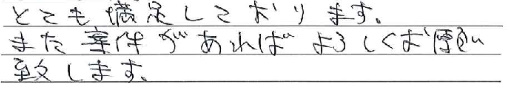 とても満足しております。
また案件があればよろしくお願い
致します。